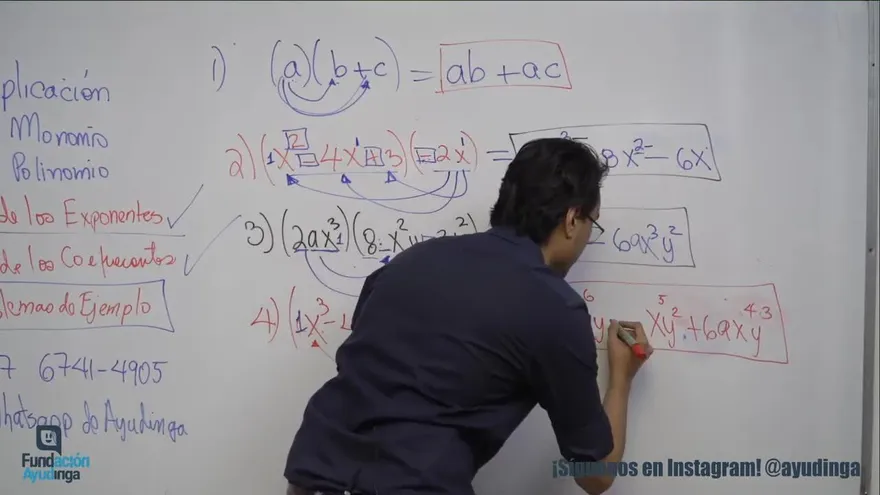 plicación
Monomio
Polinomio
de los Exponentes
de los Coeficientes
lemas de Ejemplo
7 6741-4905
Whatsapp de Ayudinga
1) (a)(b+c) = ab + ac
2) (1x² - 4x¹ + 3)(-2x¹) = 8x² - 6x
3) (2ax³)(8 - x²y 2) - 6ax³y²
4) (1x³ - y x⁵y² + 6ax⁴y³
Fundación
Ayudinga
¡Síguenos en Instagram! @ayudinga